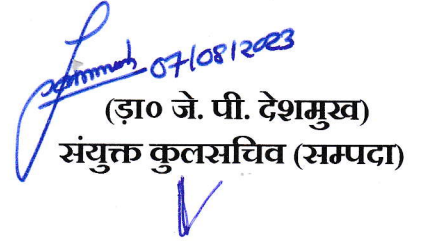 07/08/2023
(ड़ा० जे. पी. देशमुख)
संयुक्त कुलसचिव (सम्पदा)